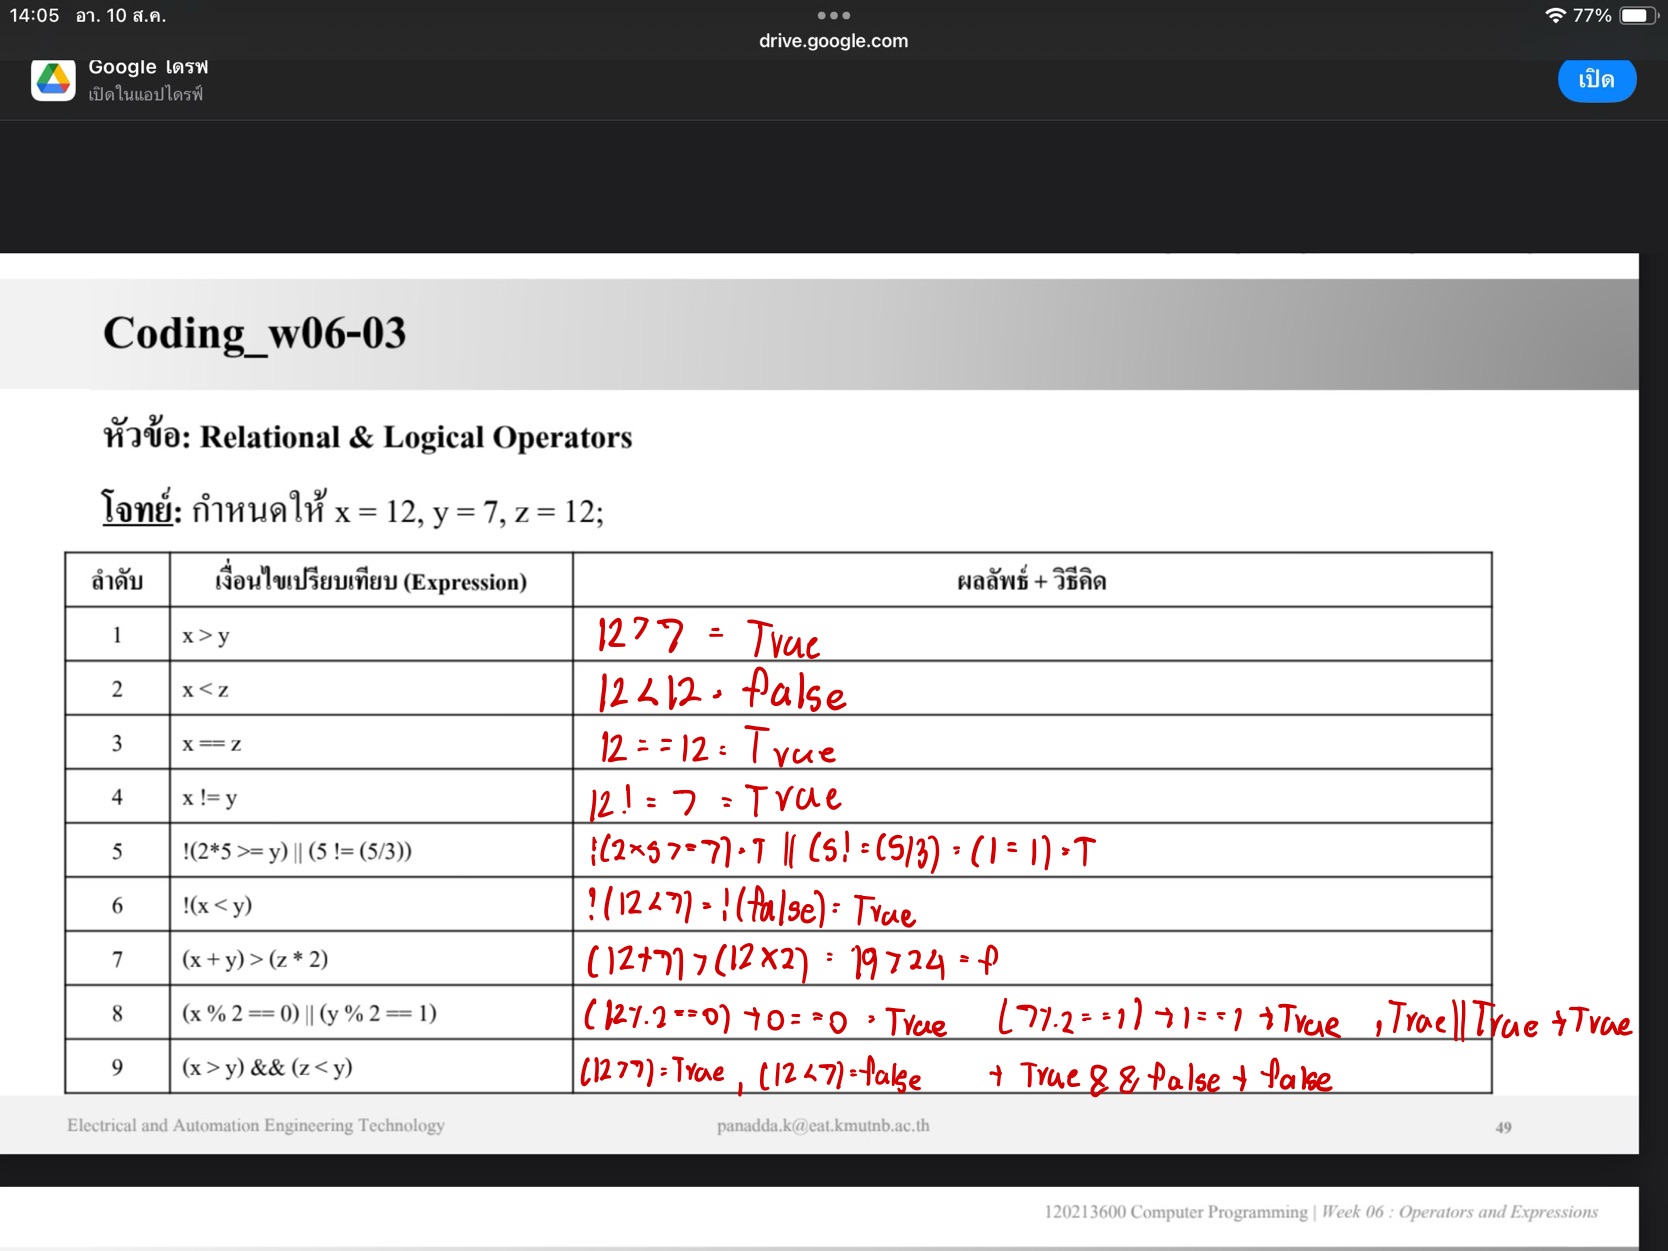 14:05 อา. 10 ส.ค.
77%
drive.google.com
Google ไดรฟ์
เปิดในแอปไดรฟ์
เปิด
Coding_w06-03
หัวข้อ: Relational & Logical Operators
โจทย์: กำหนดให้ x = 12, y = 7, z = 12;
ลำดับ เงื่อนไขเปรียบเทียบ (Expression) ผลลัพธ์ + วิธีคิด
1 x > y 12 > 7 = True
2 x < z 12 < 12 . false
3 x == z 12 == 12 = True
4 x != y 12 != 7 = True
5 !(2*5 >= y) || (5 != (5/3)) !(2×5 >= 7) . T || (5! = (5/3) = (1 = 1) . T
6 !(x < y) !(12 < 7) = !(false) = True
7 (x + y) > (z * 2) (12+7) > (12×2) = 19 > 24 = f
8 (x % 2 == 0) || (y % 2 == 1) (12%2 == 0) → 0 == 0 = True (7%2 == 1) → 1 == 1 → True , True || True → True
9 (x > y) && (z < y) (12 > 7) = True , (12 < 7) = false → True && false → false
Electrical and Automation Engineering Technology panadda.k@eat.kmutnb.ac.th 49
120213600 Computer Programming | Week 06 : Operators and Expressions